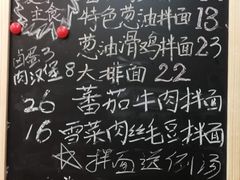 主食
特色葱油拌面13
葱油滑鸡拌面23
卤蛋3
肉汉堡8 大排面22
26 蕃茄牛肉拌面
16 雪菜肉丝毛豆拌面
☆拌面送例汤